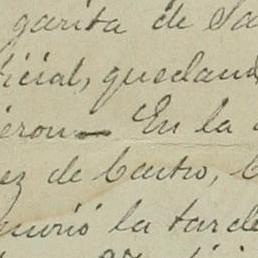 garita de Sa
icial, quedand
eron — En la
ez de Castro,
murió la tarde